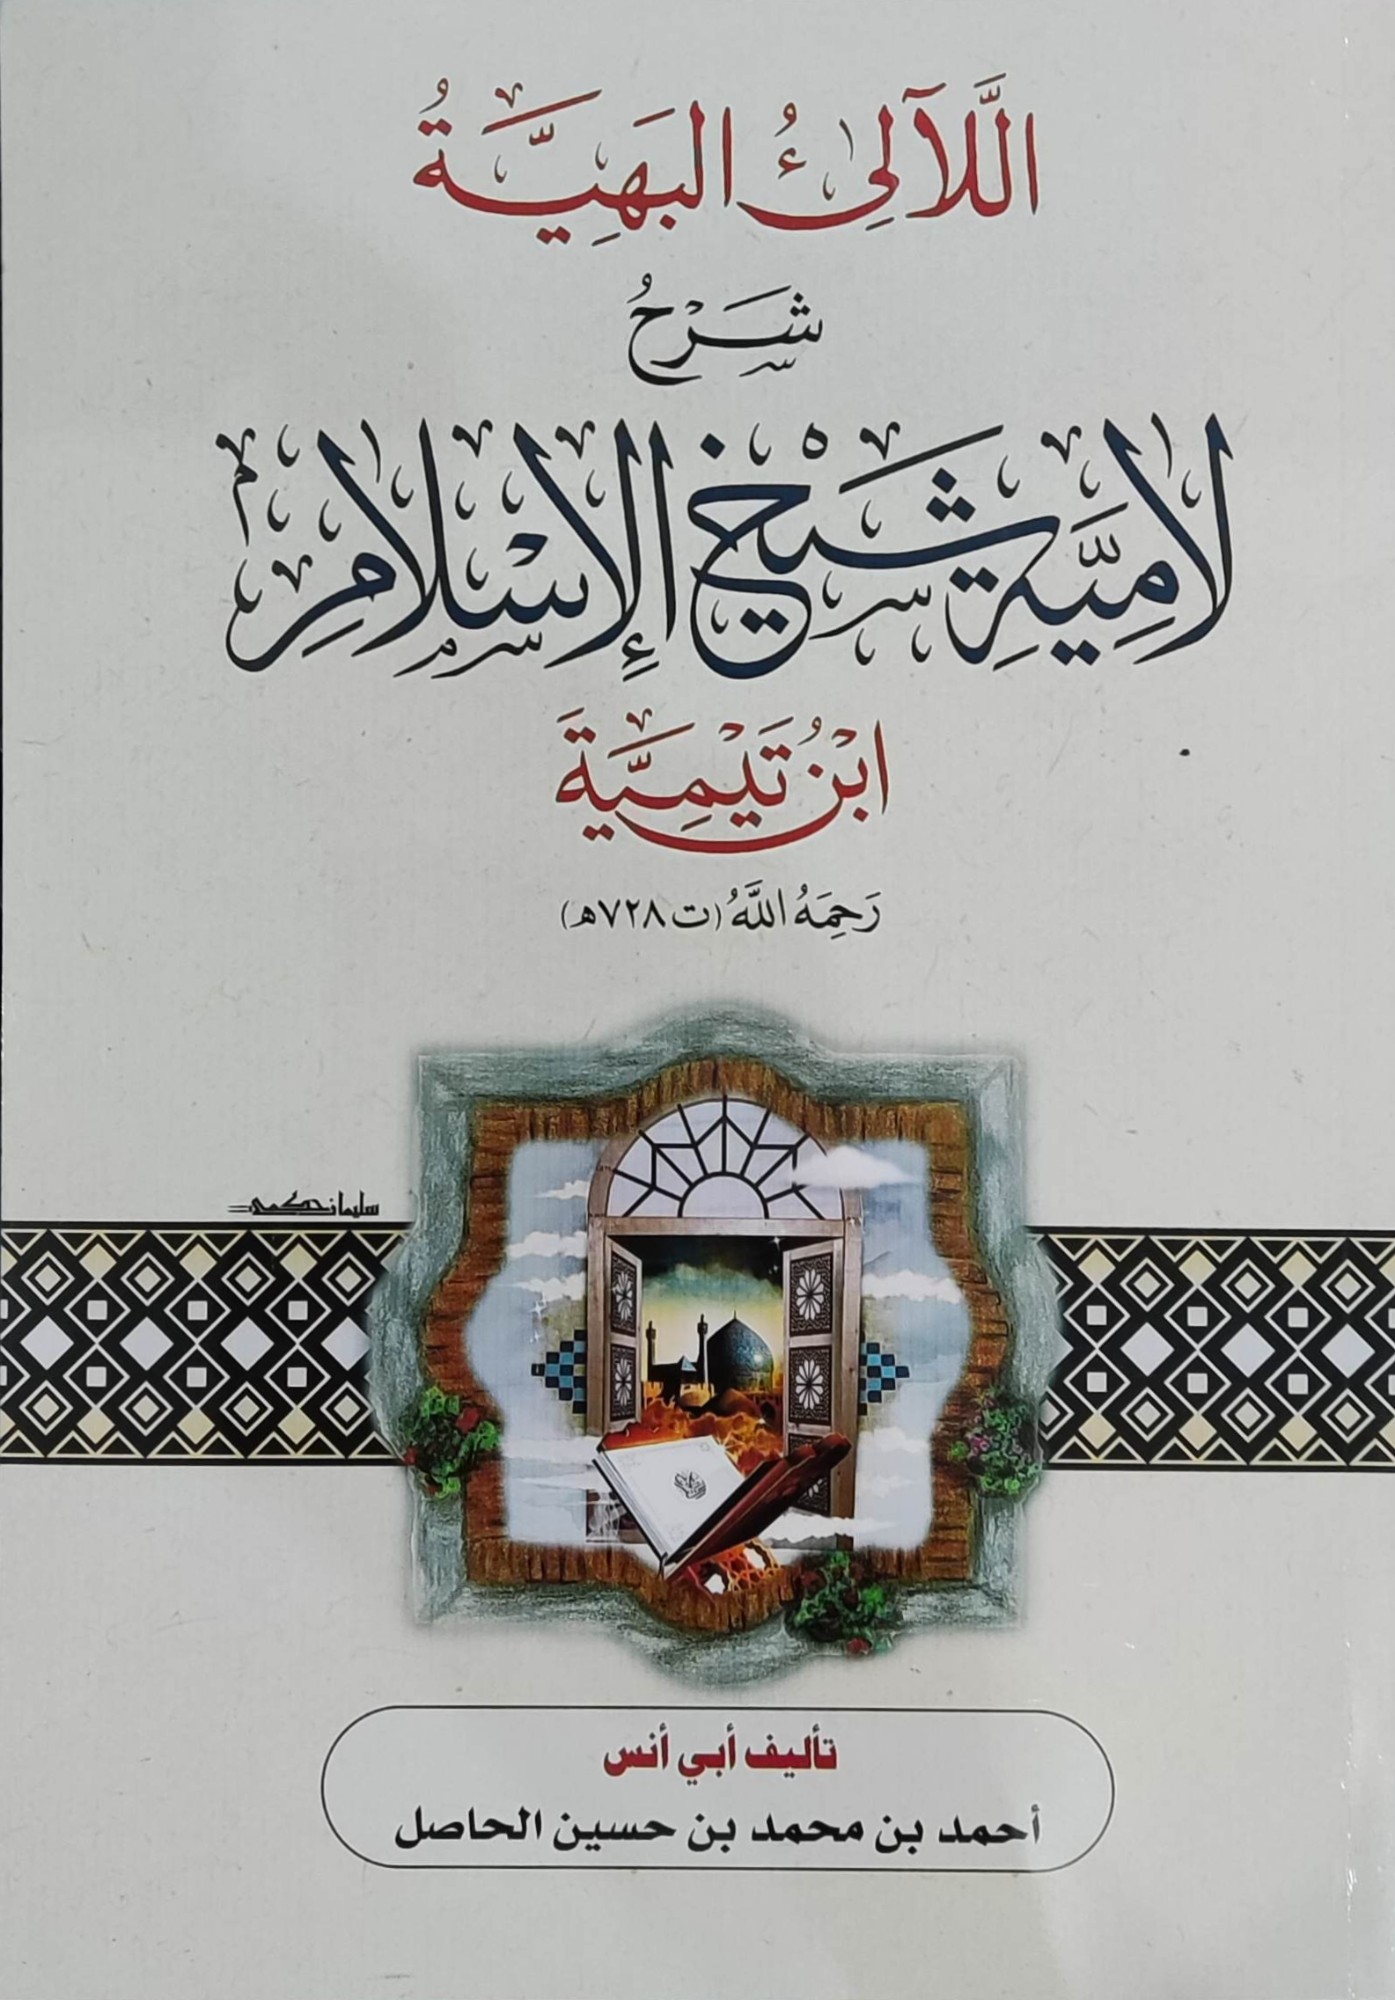 اللَّآلِئُ البَهِيَّةُ
شَرْحُ
لَامِيَّةِ شَيْخِ الإِسْلَامِ
ابْنُ تَيْمِيَّةَ
رَحِمَهُ اللَّهُ (ت ٧٢٨هـ)
سليمان حكمي
تأليف أبي أنس
أحمد بن محمد بن حسين الحاصل